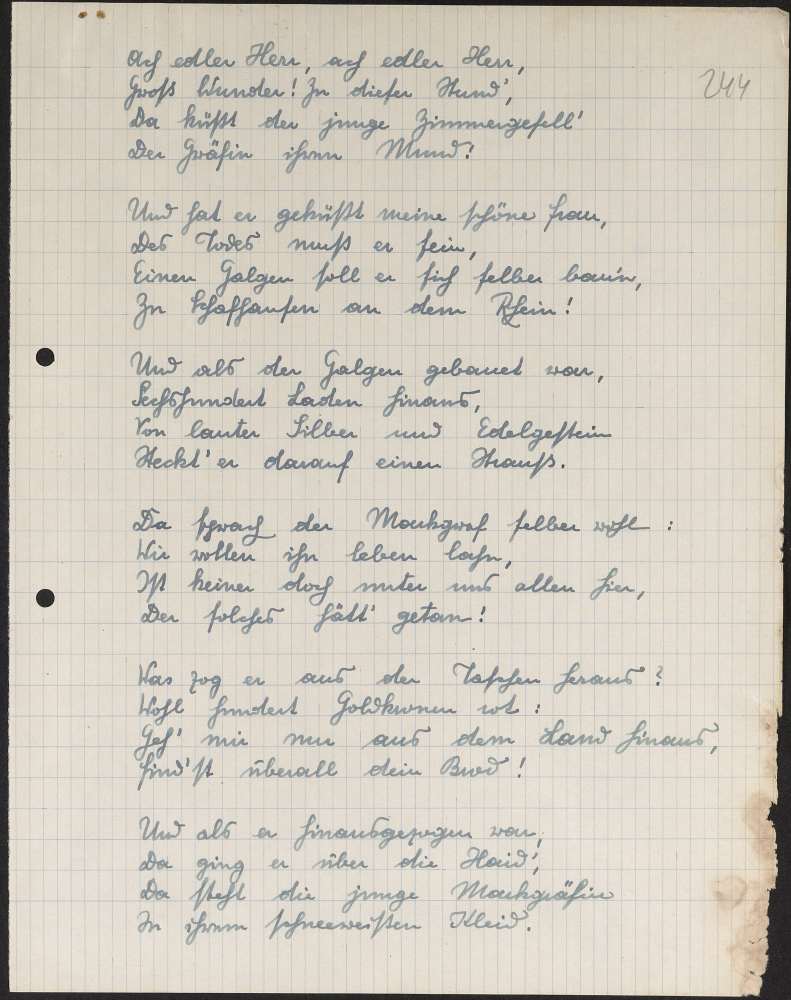 Ach edler Herr, ach edler Herr,
244
Groß Wunder! Zu dieser Stund',
Da küßt der junge Zimmergesell'
Der Gräfin ihren Mund!
Und hat er geküßt meine schöne Frau,
Des Todes muß er sein,
Einen Galgen soll er sich selber bau'n,
Zu Schaffhausen an dem Rhein!
Und als der Galgen gebauet war,
Sechshundert Laden hinaus,
Von lauter Silber und Edelgestein
Steckt' er darauf einen Strauß.
Da sprach der Markgraf selber wohl:
Wir wollen ihn leben lahn,
Ist keiner doch unter uns allen hier,
Der solches hätt' getan!
Was zog er aus der Taschen heraus?
Wohl hundert Goldkronen rot:
Geh' mir nur aus dem Land hinaus,
Find'st überall dein Brod!
Und als er hinausgezogen war,
Da ging er über die Haid',
Da steht die junge Markgräfin
In ihrem schneeweißen Kleid.